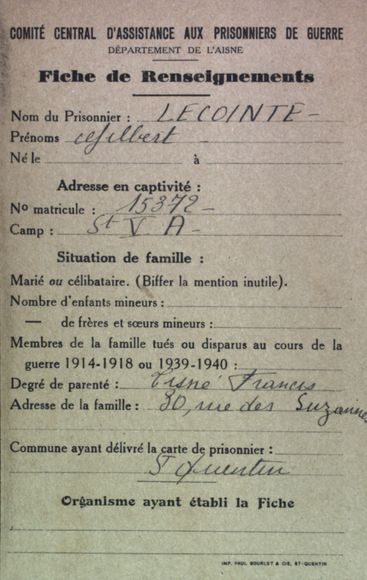 COMITÉ CENTRAL D'ASSISTANCE AUX PRISONNIERS DE GUERRE
DÉPARTEMENT DE L'AISNE
Fiche de Renseignements
Nom du Prisonnier : LECOINTE
Prénoms Gilbert
Né le à
Adresse en captivité :
No matricule : 15372
Camp : St V A
Situation de famille :
Marié ou célibataire. (Biffer la mention inutile).
Nombre d'enfants mineurs :
— de frères et sœurs mineurs :
Membres de la famille tués ou disparus au cours de la
guerre 1914-1918 ou 1939-1940 :
Degré de parenté : Francis
Adresse de la famille : 30, rue des Suzannes
Commune ayant délivré la carte de prisonnier :
St Quentin
Organisme ayant établi la Fiche
IMP. PAUL BOURLET & CIE, ST-QUENTIN